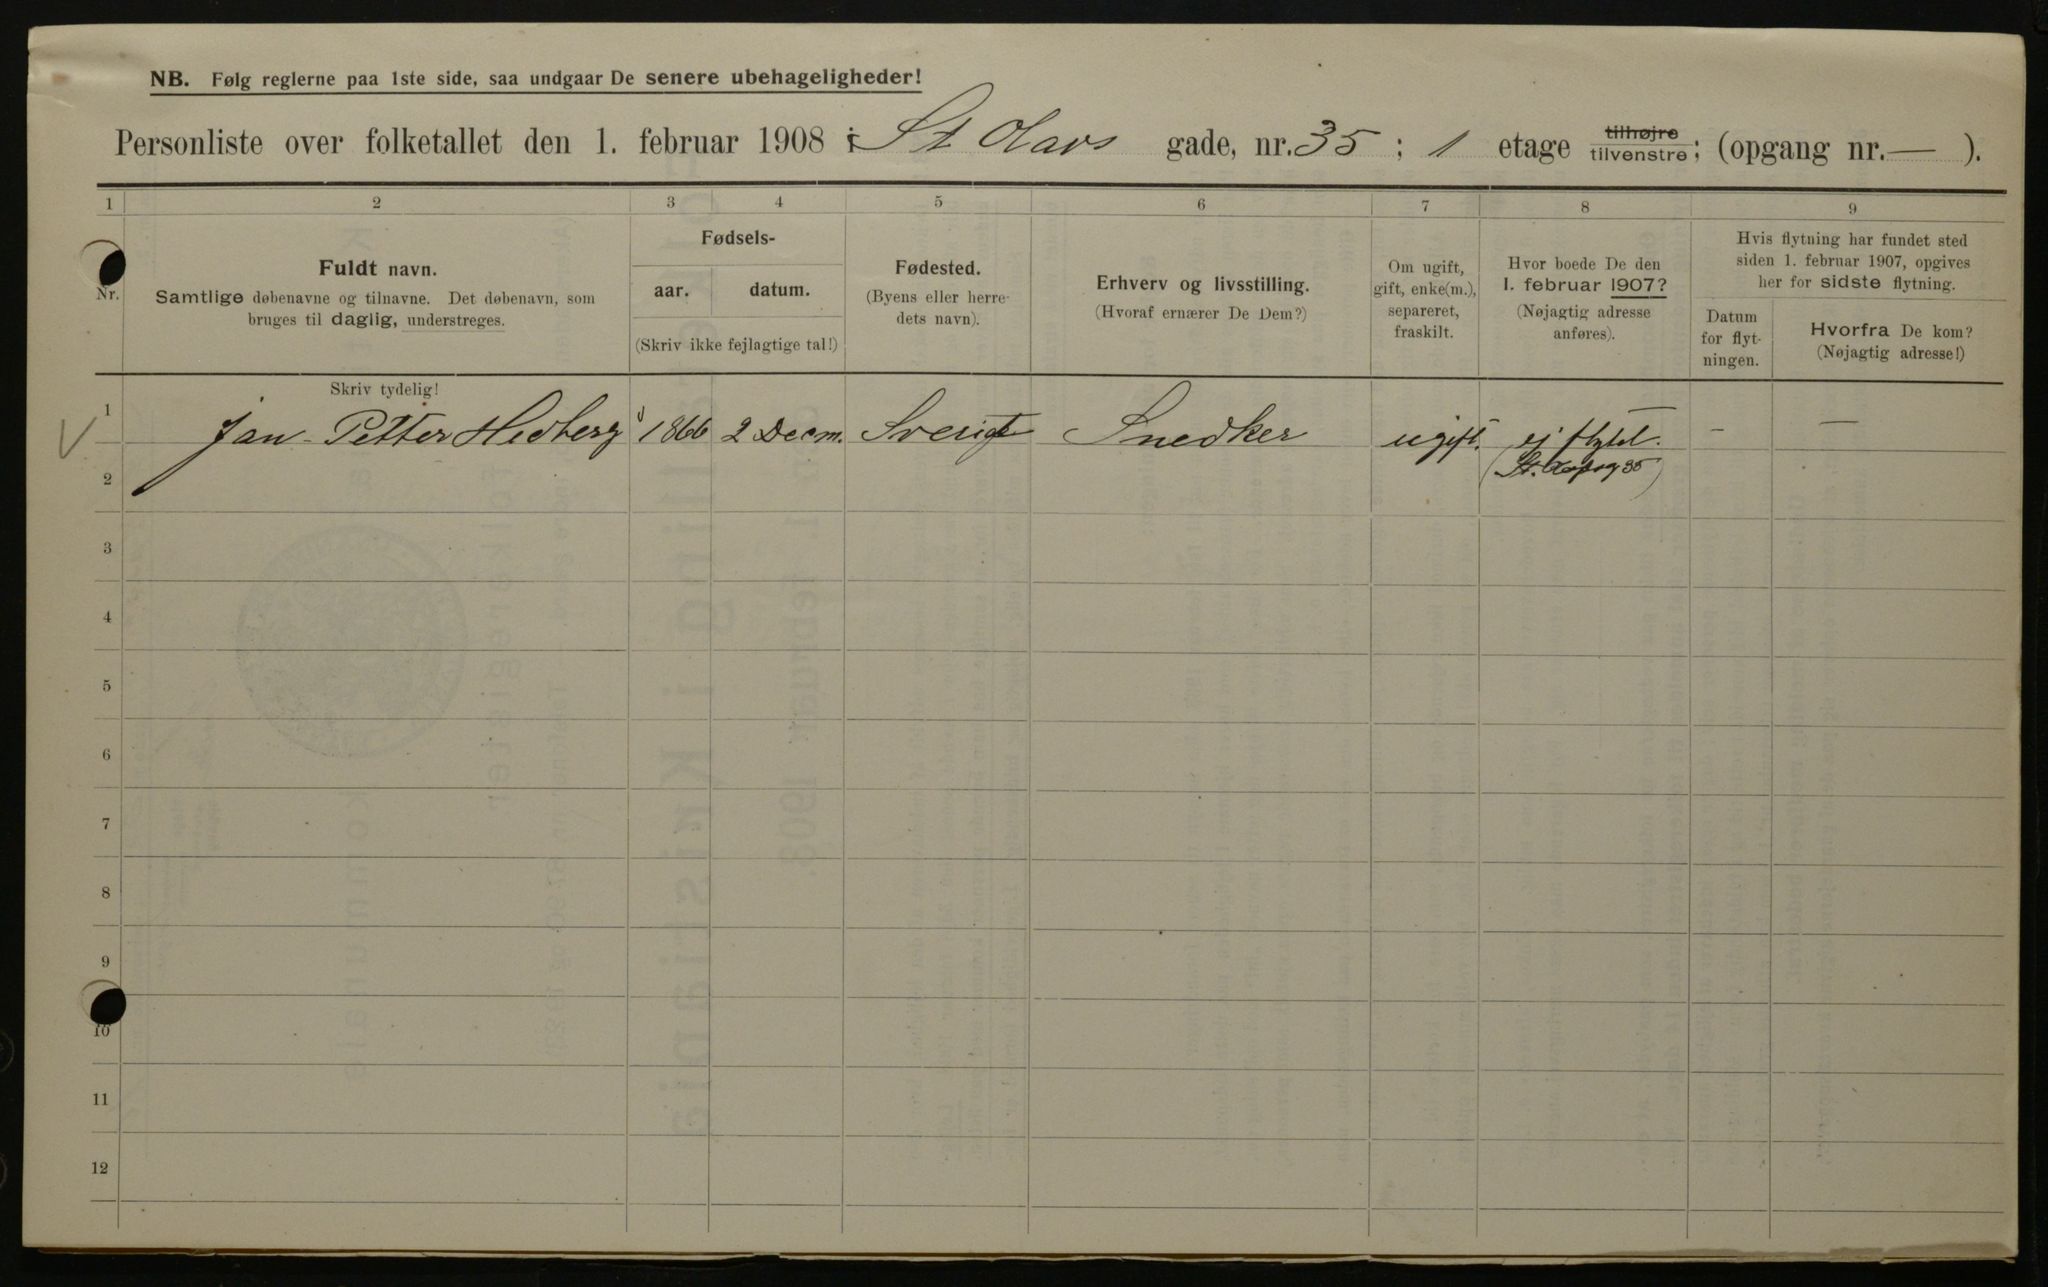 NB. Følg reglerne paa 1ste side, saa undgaar De senere ubehageligheder!
Personliste over folketallet den 1. februar 1908 i St Olavs gade, nr. 35 ; 1 etage tilhøjre tilvenstre; (opgang nr. — ).
1 2 3 4 5 6 7 8 9
Nr.
Fuldt navn.
Samtlige døbenavne og tilnavne. Det døbenavn, som
bruges til daglig, understreges.
Fødsels-
aar. datum.
(Skriv ikke fejlagtige tal!)
Fødested.
(Byens eller herre-
dets navn).
Erhverv og livsstilling.
(Hvoraf ernærer De Dem?)
Om ugift,
gift, enke(m.),
separeret,
fraskilt.
Hvor boede De den
1. februar 1907?
(Nøjagtig adresse
anføres).
Hvis flytning har fundet sted
siden 1. februar 1907, opgives
her for sidste flytning.
Datum
for flyt-
ningen.
Hvorfra De kom?
(Nøjagtig adresse!)
Skriv tydelig!
1 Jan Petter Hedberg 1866 2 Decm. Sverige Snedker ugift. ej flytet. — —
2 (St. 35)
3
4
5
6
7
8
9
10
11
12